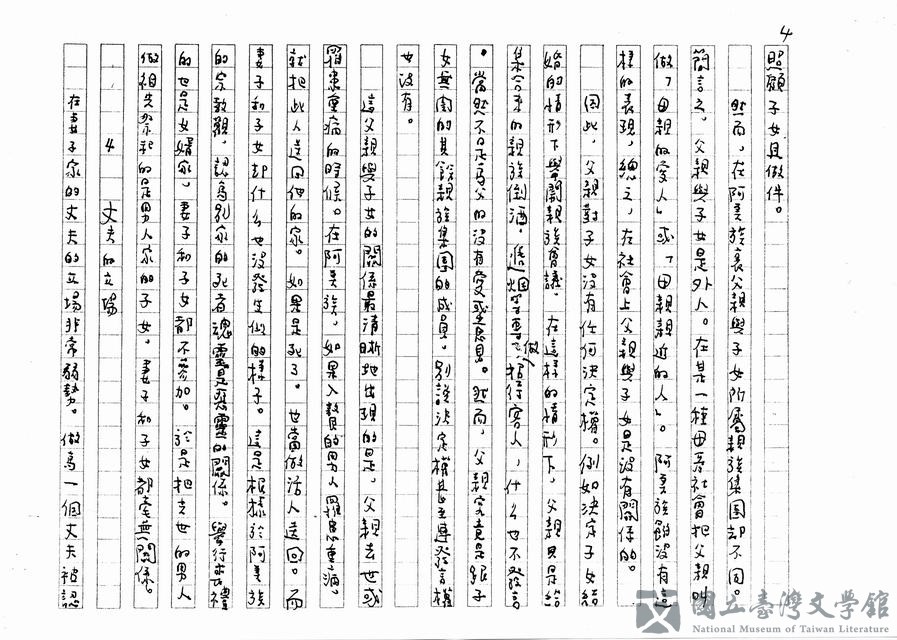 4
照顧子女且做件。
然而，在阿美族裏父親與子女所屬親族集團却不同。
簡言之，父親與子女是外人。在某一種母系社會把父親叫
做「母親的愛人」或「母親親近的人」。阿美族雖沒有這
樣的表現，總之，在社會上父親與子女是沒有關係的。
因此，父親對子女沒有任何決定權。例如決定子女結
婚的情形下舉開親族會議。在這樣的情形下，父親只是給
集合來的親族倒酒，遞烟等專做招待客人，什么也不發言
。當然不是為父的沒有愛或意見。然而，父親究竟是跟子
女無國的其餘親族集團的成員。別說決定權甚至連發言權
也沒有。
這父親與子女的關係最清晰地出現的是，父親去世或
罹患重病的時候。在阿美族，如果入贅的男人罹患重病，
就把此人送回他的家。如果是死了。也當做活人送回。而
妻子和子女却什么也沒發生似的樣子。這是根據於阿美族
的宗教觀，認為別家的死者魂靈是惡靈的關係。舉行喪禮
的也是女婿家，妻子和子女都不參加。於是把去世的男人
做祖先祭祀的是男人家的子女，妻子和子女都毫無關係。
4 丈夫的立場
在妻子家的丈夫的立場非常弱勢。做為一個丈夫被認
國立臺灣文學館
National Museum of Taiwan Literature